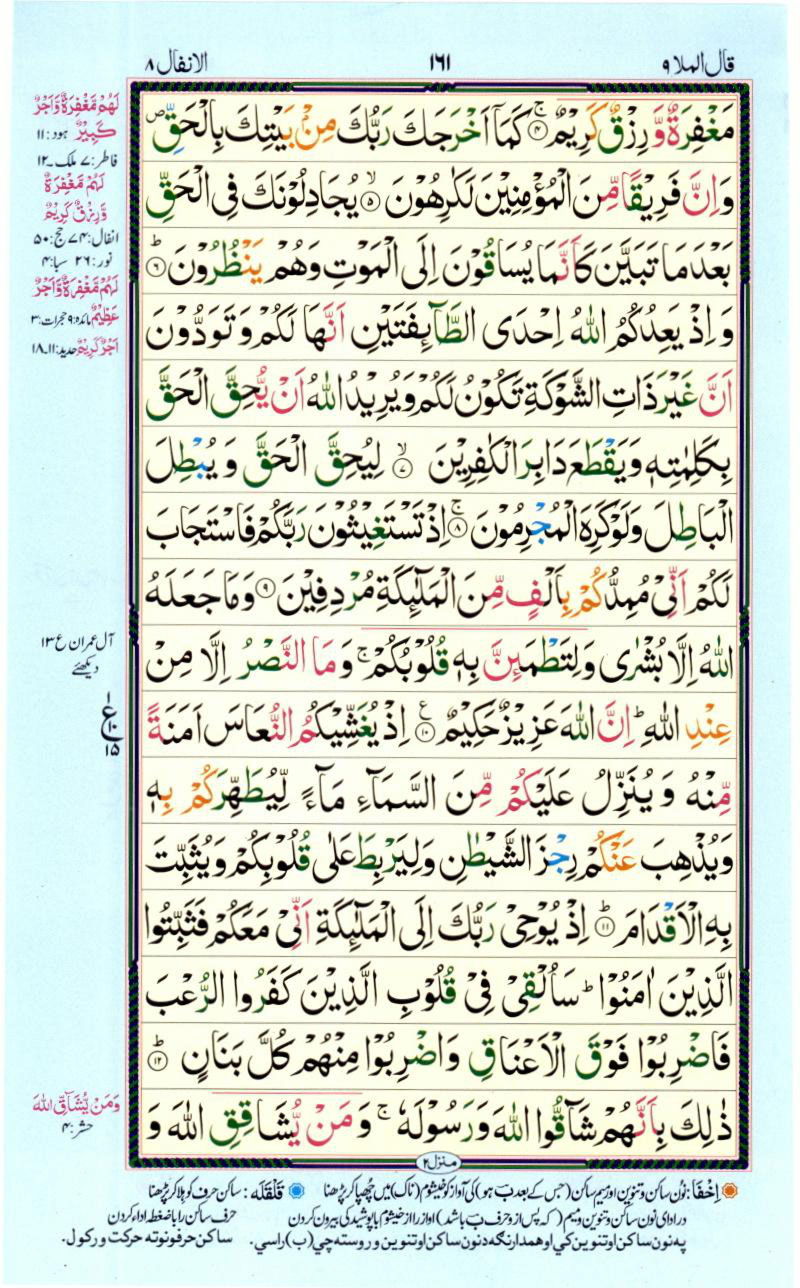 قال الملا ٩
١٦١
الانفال ٨
مَغْفِرَةٌ وَّرِزْقٌ كَرِيْمٌ ۚ ﴿۴﴾ كَمَاۤ اَخْرَجَكَ رَبُّكَ مِنْۢ بَيْتِكَ بِالْحَقِّ ۪
وَاِنَّ فَرِيْقًا مِّنَ الْمُؤْمِنِيْنَ لَكٰرِهُوْنَ ۙ ﴿۵﴾ يُجَادِلُوْنَكَ فِى الْحَقِّ
بَعْدَ مَا تَبَيَّنَ كَاَنَّمَا يُسَاقُوْنَ اِلَى الْمَوْتِ وَهُمْ يَنْظُرُوْنَ ؕ ﴿۶﴾
وَ اِذْ يَعِدُكُمُ اللّٰهُ اِحْدَى الطَّآئِفَتَيْنِ اَنَّهَا لَكُمْ وَتَوَدُّوْنَ
اَنَّ غَيْرَ ذَاتِ الشَّوْكَةِ تَكُوْنُ لَكُمْ وَيُرِيْدُ اللّٰهُ اَنْ يُّحِقَّ الْحَقَّ
بِكَلِمٰتِهٖ وَيَقْطَعَ دَابِرَ الْكٰفِرِيْنَ ۙ ﴿۷﴾ لِيُحِقَّ الْحَقَّ وَيُبْطِلَ
الْبَاطِلَ وَلَوْ كَرِهَ الْمُجْرِمُوْنَ ۚ ﴿۸﴾ اِذْ تَسْتَغِيْثُوْنَ رَبَّكُمْ فَاسْتَجَابَ
لَكُمْ اَنِّىْ مُمِدُّكُمْ بِاَلْفٍ مِّنَ الْمَلٰٓئِكَةِ مُرْدِفِيْنَ ﴿۹﴾ وَمَا جَعَلَهُ
اللّٰهُ اِلَّا بُشْرٰى وَلِتَطْمَئِنَّ بِهٖ قُلُوْبُكُمْ ۚ وَمَا النَّصْرُ اِلَّا مِنْ
عِنْدِ اللّٰهِ ؕ اِنَّ اللّٰهَ عَزِيْزٌ حَكِيْمٌ ﴿۱۰﴾ اِذْ يُغَشِّيْكُمُ النُّعَاسَ اَمَنَةً
مِّنْهُ وَيُنَزِّلُ عَلَيْكُمْ مِّنَ السَّمَآءِ مَآءً لِّيُطَهِّرَكُمْ بِهٖ
وَيُذْهِبَ عَنْكُمْ رِجْزَ الشَّيْطٰنِ وَلِيَرْبِطَ عَلٰى قُلُوْبِكُمْ وَيُثَبِّتَ
بِهِ الْاَقْدَامَ ؕ ﴿۱۱﴾ اِذْ يُوْحِىْ رَبُّكَ اِلَى الْمَلٰٓئِكَةِ اَنِّىْ مَعَكُمْ فَثَبِّتُوا
الَّذِيْنَ اٰمَنُوْا ؕ سَاُلْقِىْ فِىْ قُلُوْبِ الَّذِيْنَ كَفَرُوا الرُّعْبَ
فَاضْرِبُوْا فَوْقَ الْاَعْنَاقِ وَاضْرِبُوْا مِنْهُمْ كُلَّ بَنَانٍ ؕ ﴿۱۲﴾
ذٰلِكَ بِاَنَّهُمْ شَآقُّوا اللّٰهَ وَرَسُوْلَهٗ ۚ وَمَنْ يُّشَاقِقِ اللّٰهَ وَ
لَهُمْ مَّغْفِرَةٌ وَّاَجْرٌ
كَبِيْرٌ هود: ۱۱
فاطر: ۷ ملک ۔ ۱۲
لَهُمْ مَّغْفِرَةٌ
وَّرِزْقٌ كَرِيْمٌ
انفال: ۷۴ حج: ۵۰
نور: ۲۶ سبا: ۴
لَهُمْ مَّغْفِرَةٌ وَّاَجْرٌ
عَظِيْمٌ مائدہ: ۹ حجرات: ۳
اَجْرٌ كَرِيْمٌ حدید: ۱۱۔۱۸
آل عمران ع ۱۳
دیکھئے
ع
۱۰
۱۵
وَمَنْ يُّشَآقِّ اللّٰهَ
حشر: ۴
منزل ۲
اِخْفَا: نون ساکن و تنوین اور میم ساکن (جس کے بعد ب ہو) کی آواز کو خیشوم (ناک) میں چھپا کر پڑھنا
قَلْقَلَه: ساکن حرف کو ہلا کر پڑھنا
در ادای نون ساکن و تنوین و میم (که پس از و حرف ب باشد) آواز را از خیشوم با پوشیدگی بیرون کردن
حرف ساکن را با ضغطه ادا کردن
ساکن حرفونو ته حرکت ورکول.